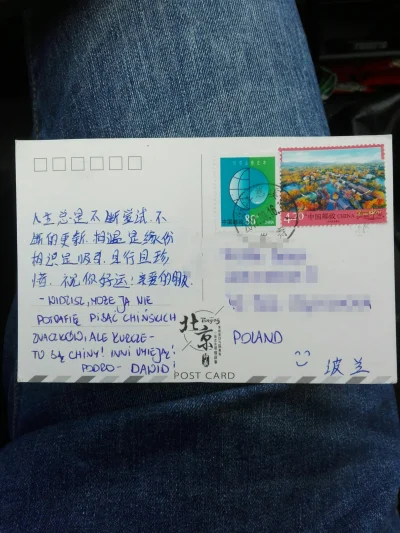 人生总是不断尝试,不
断的更新.相遇是缘份
相识是吸引.且行且珍
惜.祝你好运!亲爱的朋友
- WIDZISZ, MOŻE JA NIE
POTRAFIĘ PISAĆ CHIŃSKICH
ZNACZKÓW, ALE KURCZE -
TU SĄ CHINY! INNI UMIEJĄ!
POZDRO - DAWID
中国邮政
80
4.20
中国邮政 CHINA
北京
Beijing
POST CARD
POLAND
波兰